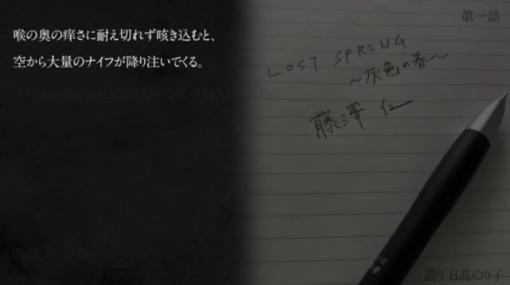 第一話
喉の奥の痒さに耐え切れず咳き込むと、
空から大量のナイフが降り注いでくる。
LOST SPRING
～灰色の春～
藤澤 仁
語り 日髙のり子